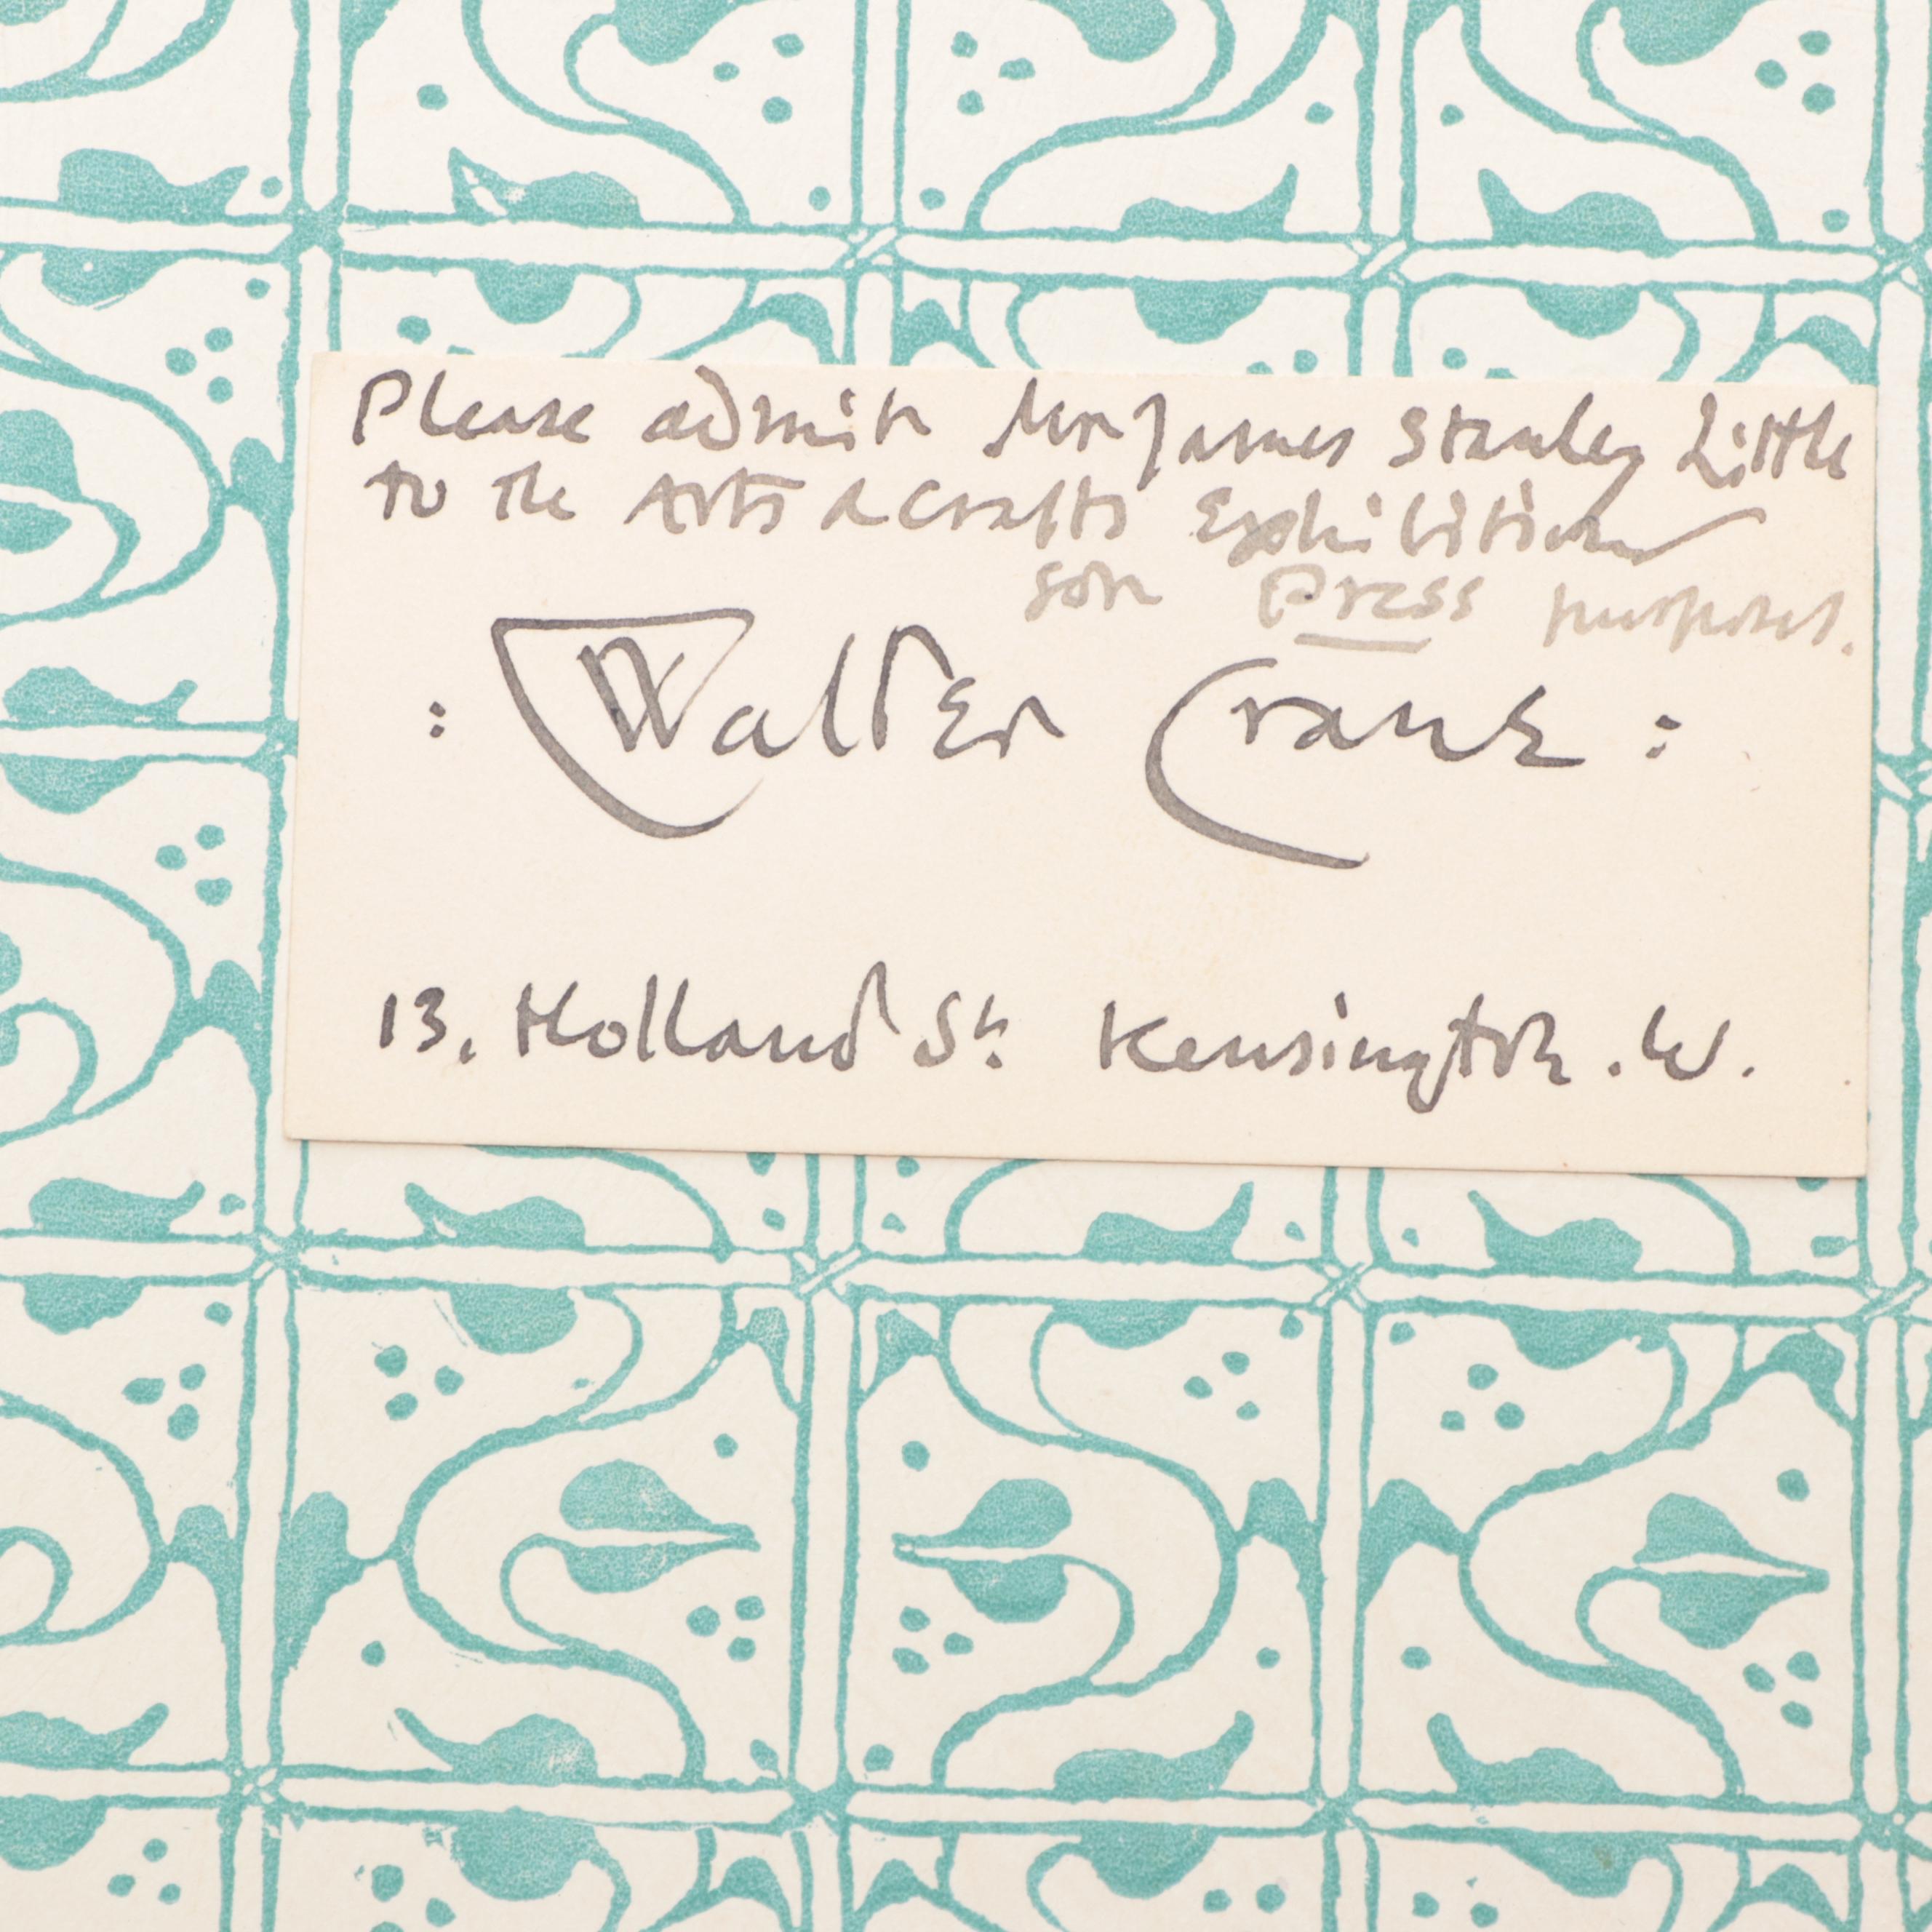 Please admit Mr James Stanley Little
to the Arts & Crafts Exhibition
for Press purposes.
: Walter Crane :
13. Holland St. Kensington. W.